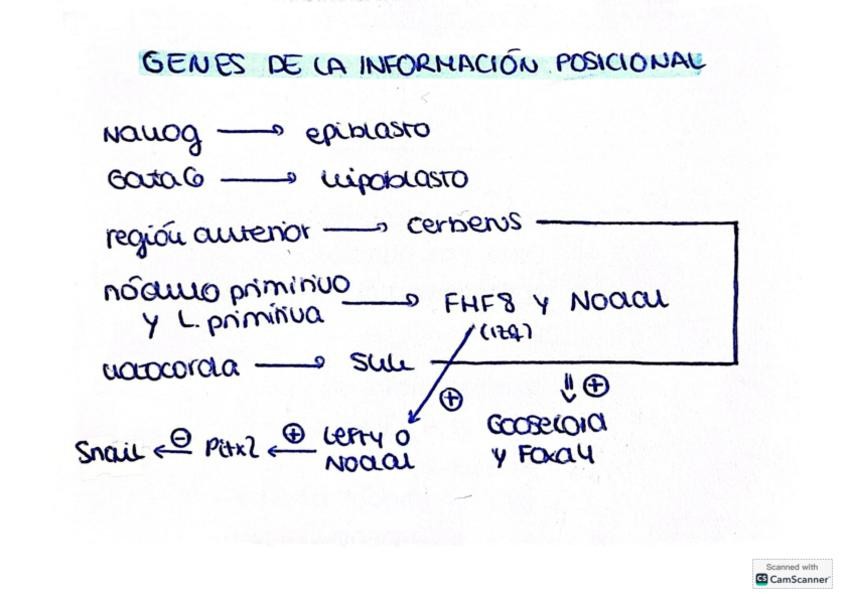 GENES DE LA INFORMACIÓN POSICIONAL
Nanog → epiblasto
Gata6 → hipoblasto
región anterior → cerberus
nódulo primitivo
y L. primitiva → FHF8 y Nodal
(izq)
notocorda → Shh
⊕ ⇓ ⊕
Goosecoid
y Foxa4
Snail ← ⊖ Pitx2 ← ⊕ Lefty o
Nodal
Scanned with
CS CamScanner